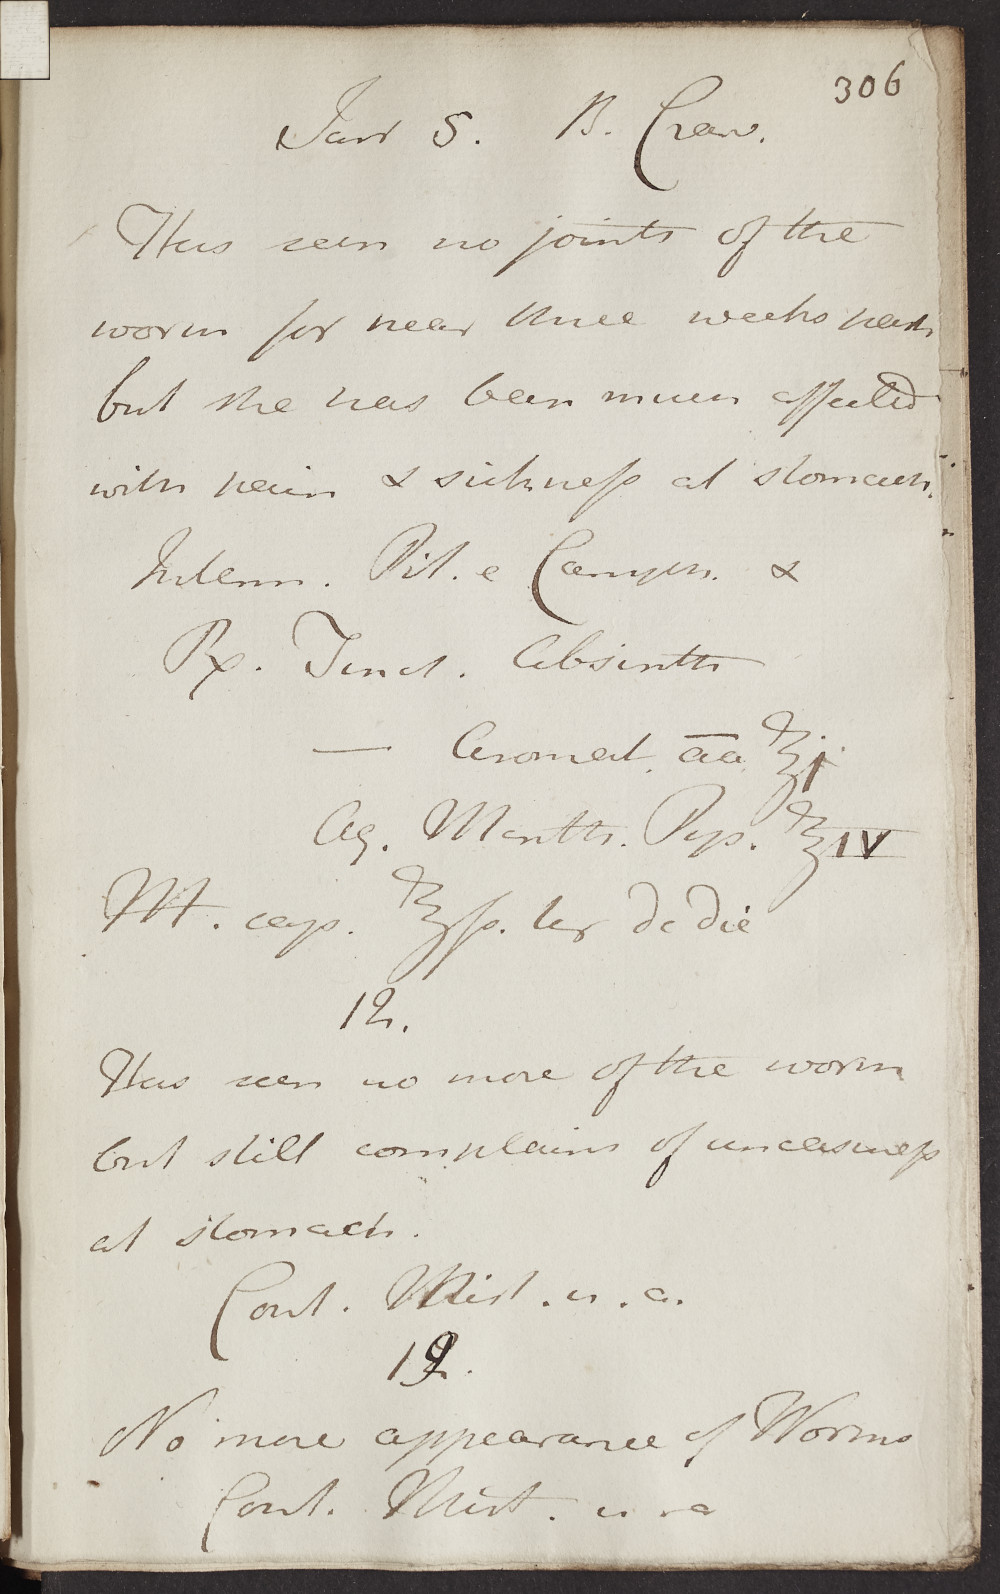 306
Jan 5. B. Craw.
Has seen no joints of the
worm for near three weeks past
but she has been much affected
with pain & sickness at stomach.
Interm. Pil. e Camph. &
Rx. Tinct. Absinth
— Aromat. āā ℥j
Aq. Menth. Pip. ℥IV
Mt. cap. ℥ſs. ter de die
12.
Has seen no more of the worm
but still complains of uneasineſs
at stomach.
Cont. Mist. u. a.
19.
No more appearance of Worms
Cont. Mist. u. a